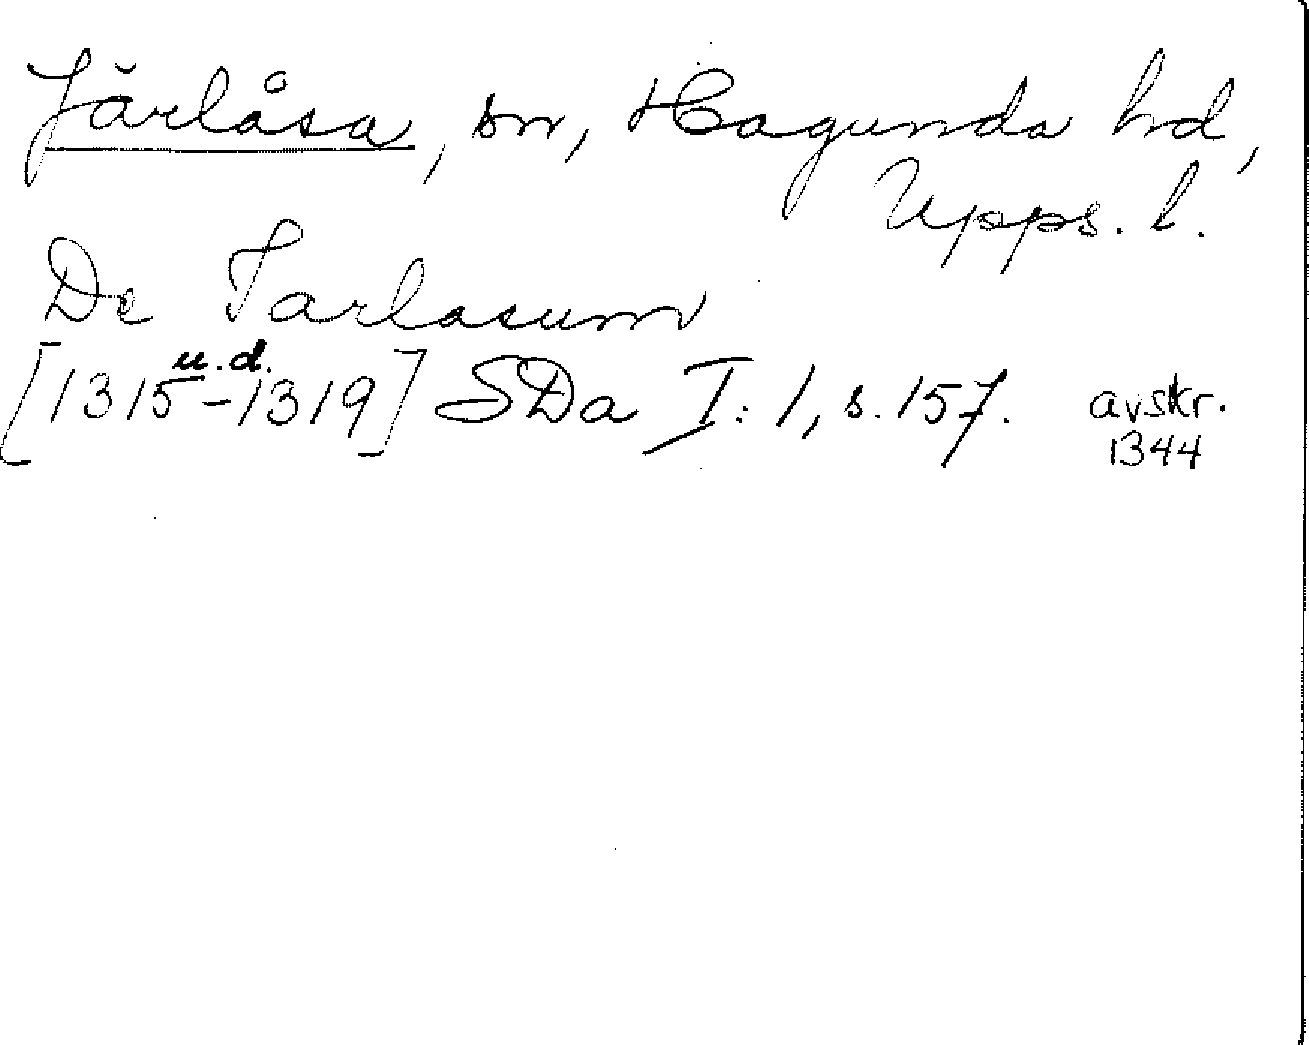 Järlåsa, sn, Hagunda hd,
Upps. l.
De Iarlasum
u.d.
[1315-1319] SDa I:1, s. 157. avskr.
1344